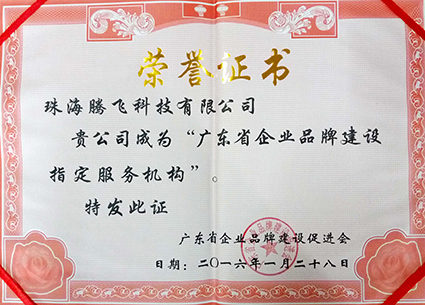 荣誉证书
珠海腾飞科技有限公司
贵公司成为“广东省企业品牌建设
指定服务机构”
特发此证
广东省企业品牌建设促进会
日期:二〇一六年一月二十八日